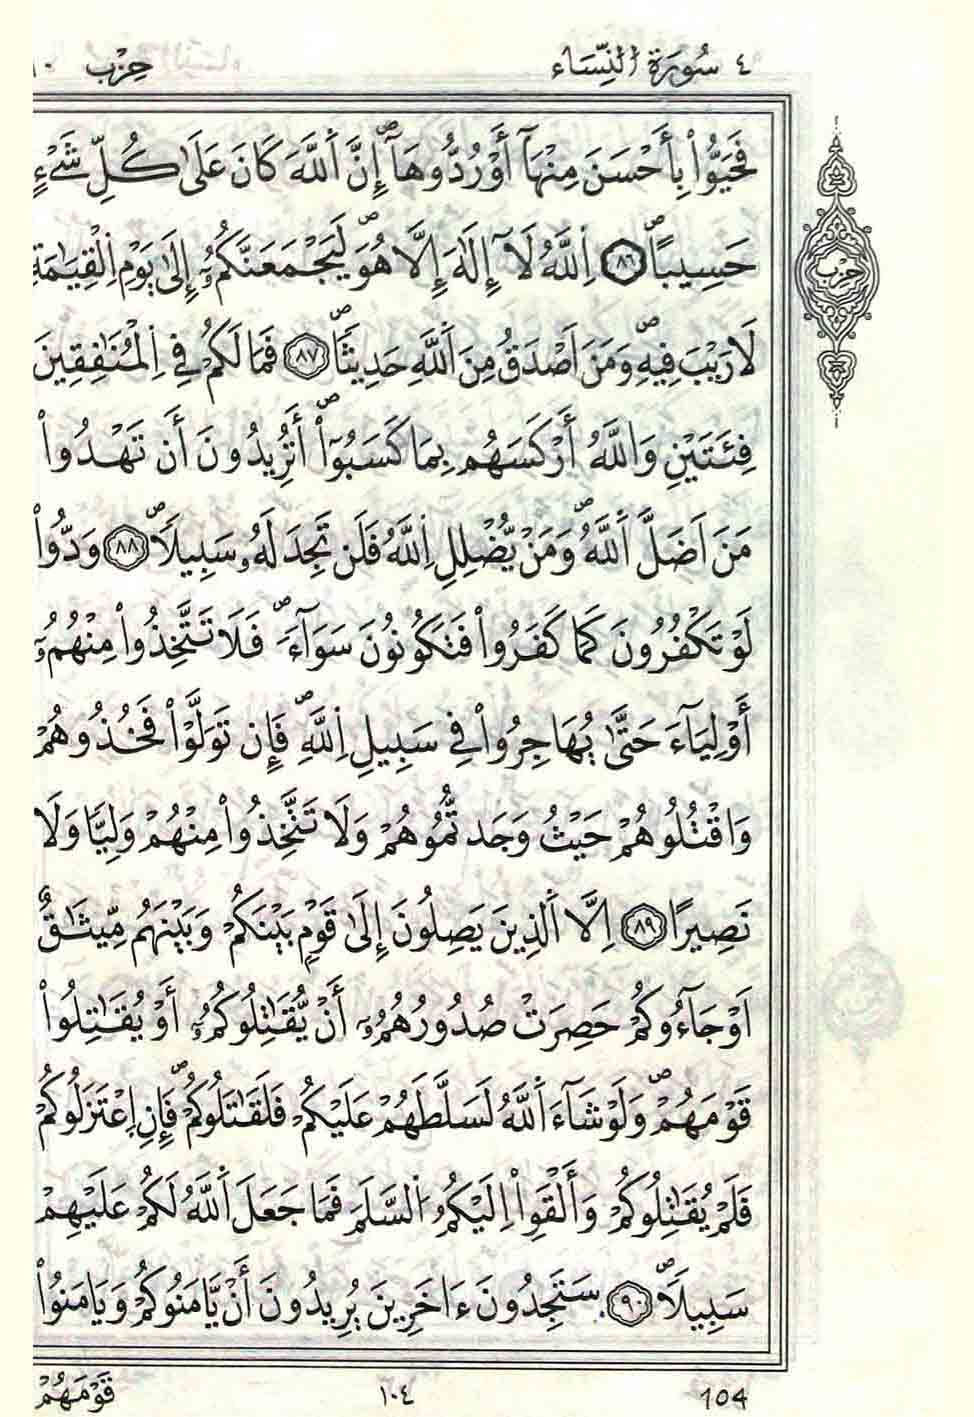 ٤ سُورَةُ النِّسَاءِ حِزْب ١٠
فَحَيُّواْ بِأَحْسَنَ مِنْهَآ أَوْ رُدُّوهَآ إِنَّ اَ۬للَّهَ كَانَ عَلَىٰ كُلِّ شَےْءٍ
حَسِيباً ٨٦ اِ۬للَّهُ لَآ إِلَٰهَ إِلَّا هُوَ لَيَجْمَعَنَّكُمُۥٓ إِلَىٰ يَوْمِ اِ۬لْقِيَٰمَةِ
حِزْب
لَا رَيْبَ فِيهِ وَمَنَ اَصْدَقُ مِنَ اَ۬للَّهِ حَدِيثاً ٨٧ فَمَا لَكُمْ فِے اِ۬لْمُنَٰفِقِينَ
فِئَتَيْنِ وَاللَّهُ أَرْكَسَهُم بِمَا كَسَبُوٓاْ أَتُرِيدُونَ أَن تَهْدُواْ
مَنَ اَضَلَّ اَ۬للَّهُ وَمَنْ يُّضْلِلِ اِ۬للَّهُ فَلَن تَجِدَ لَهُۥ سَبِيلاً ٨٨ وَدُّواْ
لَوْ تَكْفُرُونَ كَمَا كَفَرُواْ فَتَكُونُونَ سَوَآءً فَلَا تَتَّخِذُواْ مِنْهُمُۥٓ
أَوْلِيَآءَ حَتَّىٰ يُهَاجِرُواْ فِے سَبِيلِ اِ۬للَّهِ فَإِن تَوَلَّوْاْ فَخُذُوهُمْ
وَاقْتُلُوهُمْ حَيْثُ وَجَدتُّمُوهُمْ وَلَا تَتَّخِذُواْ مِنْهُمْ وَلِيّاً وَلَا
نَصِيراً ٨٩ اِلَّا اَ۬لذِينَ يَصِلُونَ إِلَىٰ قَوْمِۢ بَيْنَكُمْ وَبَيْنَهُم مِّيثَٰقٌ
اَوْ جَآءُوكُمْ حَصِرَتْ صُدُورُهُمُۥٓ أَنْ يُّقَٰتِلُوكُمُۥٓ أَوْ يُقَٰتِلُواْ
قَوْمَهُمْ وَلَوْ شَآءَ اَ۬للَّهُ لَسَلَّطَهُمْ عَلَيْكُمْ فَلَقَٰتَلُوكُمْ فَإِنِ اِ۪عْتَزَلُوكُمْ
فَلَمْ يُقَٰتِلُوكُمْ وَأَلْقَوِاْ اِلَيْكُمُ اُ۬لسَّلَمَ فَمَا جَعَلَ اَ۬للَّهُ لَكُمْ عَلَيْهِمْ
سَبِيلاً ٩٠ سَتَجِدُونَ ءَاخَرِينَ يُرِيدُونَ أَنْ يَّامَنُوكُمْ وَيَامَنُواْ
قَوْمَهُمْ ١٠٤ 104